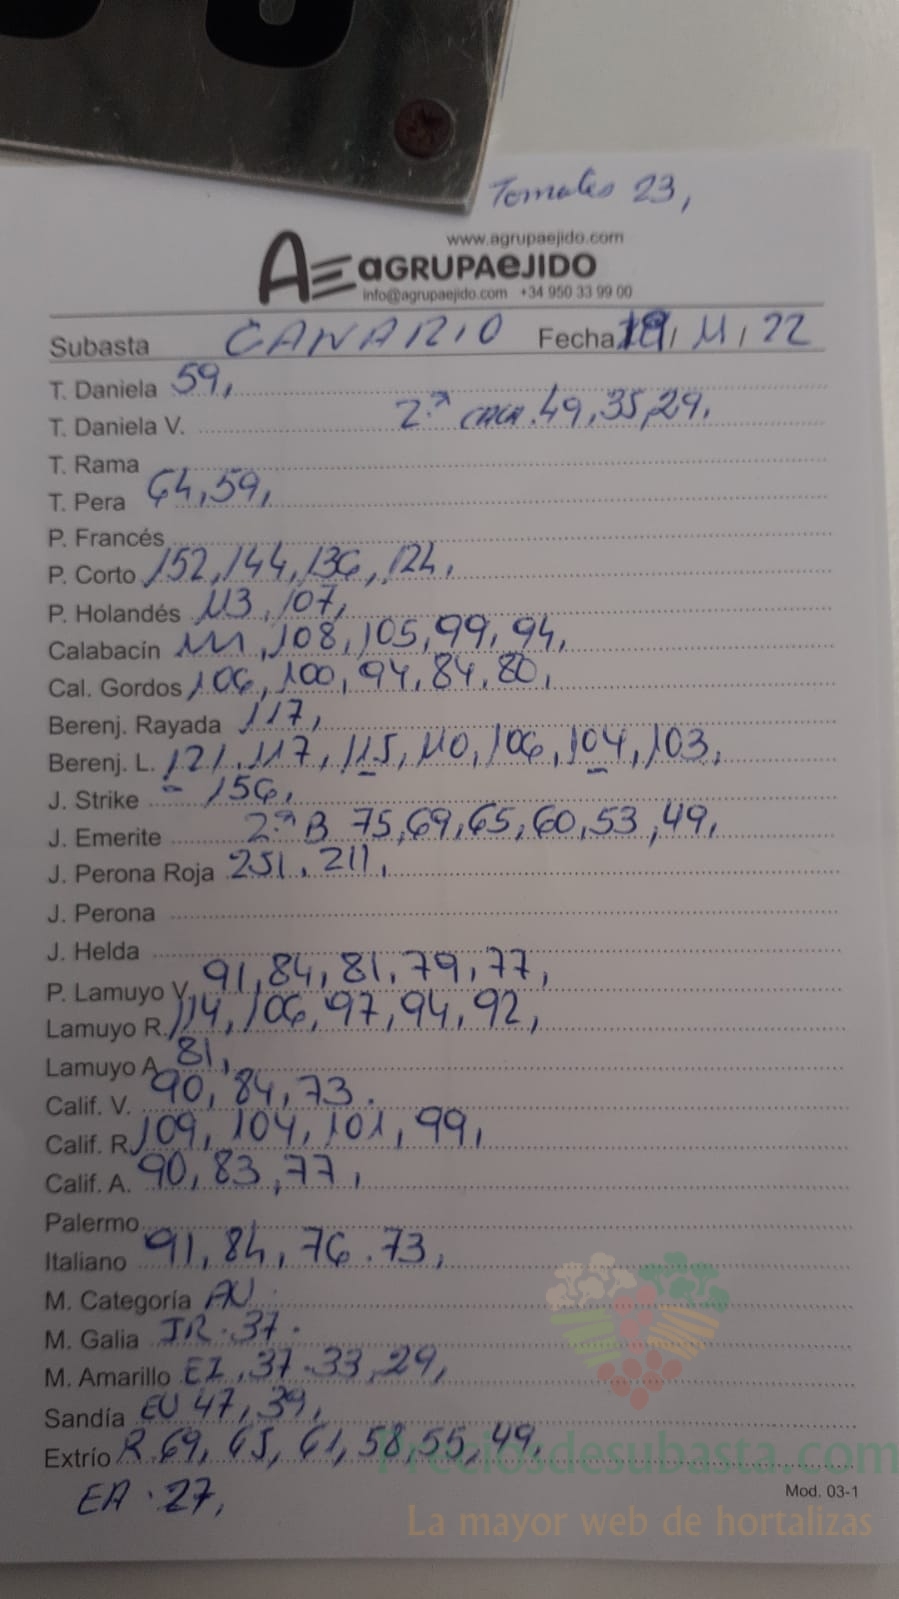 Tomates 23,
www.agrupaejido.com
AE aGRUPAeJIDO
info@agrupaejido.com +34 950 33 99 00
Subasta CANARIO Fecha 19/11/22
T. Daniela 59,
T. Daniela V. 2.ª CACA. 49, 35, 29,
T. Rama
T. Pera 64, 59,
P. Francés
P. Corto 152, 144, 136, 124,
P. Holandés 113, 107,
Calabacín 111, 108, 105, 99, 94,
Cal. Gordos 106, 100, 94, 84, 80,
Berenj. Rayada 117,
Berenj. L. 121, 117, 115, 110, 106, 104, 103,
J. Strike - 156,
J. Emerite 2.ª B 75, 69, 65, 60, 53, 49,
J. Perona Roja 251, 211,
J. Perona
J. Helda
P. Lamuyo V. 91, 84, 81, 79, 77,
Lamuyo R. 114, 106, 97, 94, 92,
Lamuyo A. 81,
Calif. V. 90, 84, 73.
Calif. R. 109, 104, 101, 99,
Calif. A. 90, 83, 77,
Palermo
Italiano 91, 84, 76. 73,
M. Categoría AU.
M. Galia IR. 37.
M. Amarillo EI, 37. 33, 29,
Sandía EU 47, 39,
Extrío R 69, 65, 61, 58, 55, 49,
EA. 27,
Mod. 03-1
Preciosdesubasta.com
La mayor web de hortalizas